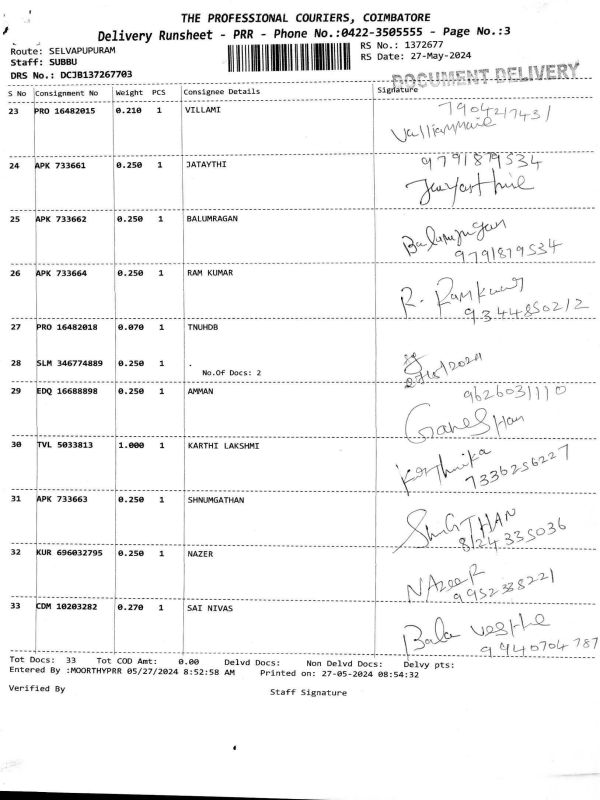 THE PROFESSIONAL COURIERS, COIMBATORE
Delivery Runsheet - PRR - Phone No.:0422-3505555 - Page No.:3
Route: SELVAPUPURAM
RS No.: 1372677
Staff: SUBBU
RS Date: 27-May-2024
DRS No.: DCJB137267703
DOCUMENT DELIVERY
S No Consignment No Weight PCS Consignee Details Signature
23 PRO 16482015 0.210 1 VILLAMI
7904217431
24 APK 733661 0.250 1 JATAYTHI
9791879534
25 APK 733662 0.250 1 BALUMRAGAN
Balamurugan
9791879534
26 APK 733664 0.250 1 RAM KUMAR
R. Ramkumar
9344850212
27 PRO 16482018 0.070 1 TNUHDB
28 SLM 346774889 0.250 1 .
No.Of Docs: 2
29 EDQ 16688898 0.250 1 AMMAN
9626031110
GaneShan
30 TVL 5033813 1.000 1 KARTHI LAKSHMI
Karthika
7336256227
31 APK 733663 0.250 1 SHNUMGATHAN
8124335036
32 KUR 696032795 0.250 1 NAZER
NAzeeR
9952338221
33 CDM 10203282 0.270 1 SAI NIVAS
Bala
9940704787
Tot Docs: 33 Tot COD Amt: 0.00 Delvd Docs: Non Delvd Docs: Delvy pts:
Entered By :MOORTHYPRR 05/27/2024 8:52:58 AM Printed on: 27-05-2024 08:54:32
Verified By
Staff Signature